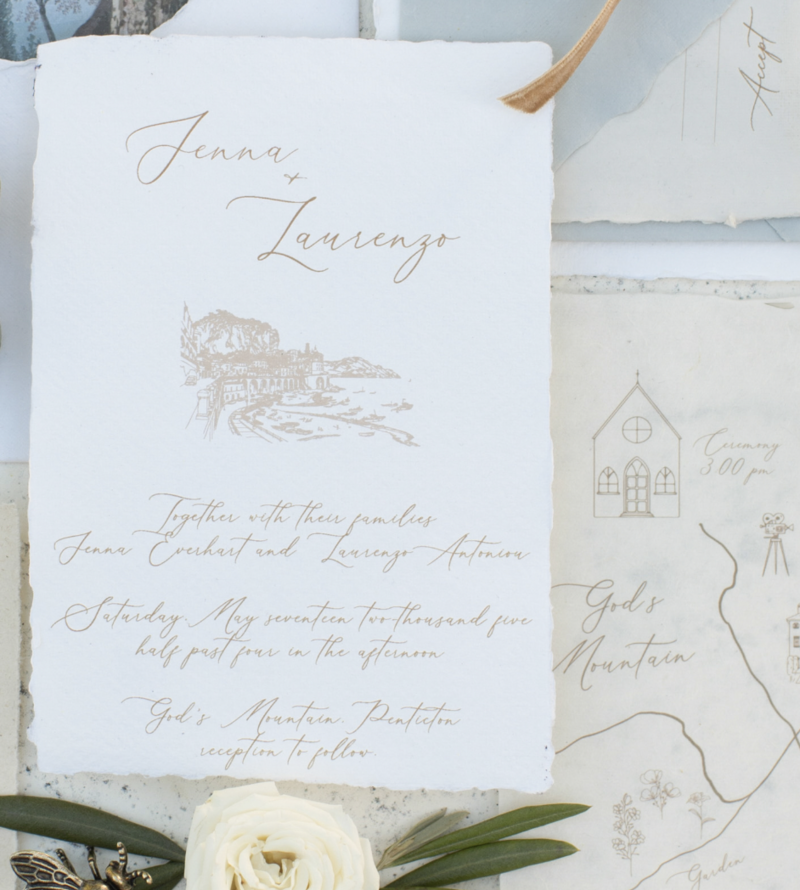 Jenna
+
Laurenzo
Together with their families
Jenna Everhart and Laurenzo Antoniou
Saturday. May seventeen two-thousand five
half past four in the afternoon
God's Mountain. Penticton
reception to follow.
Accept
Ceremony
3.00 pm
God's
Mountain
Garden